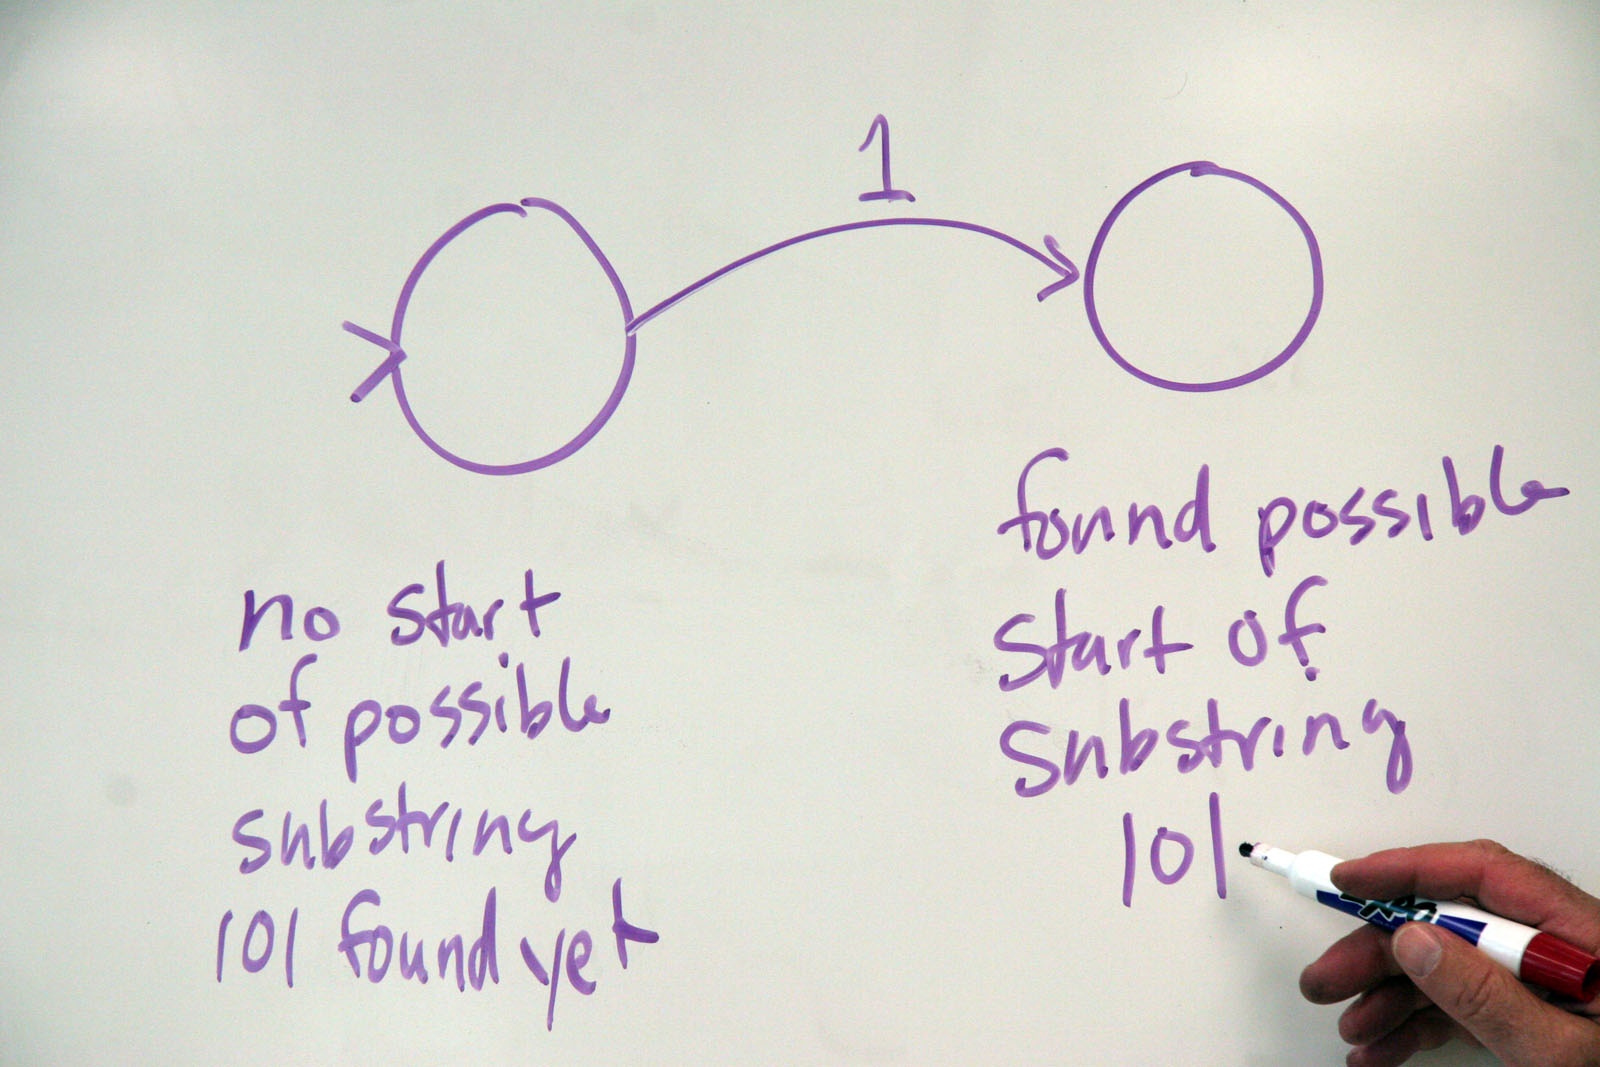 1
no start
of possible
substring
101 found yet
found possible
start of
substring
101
EXPO